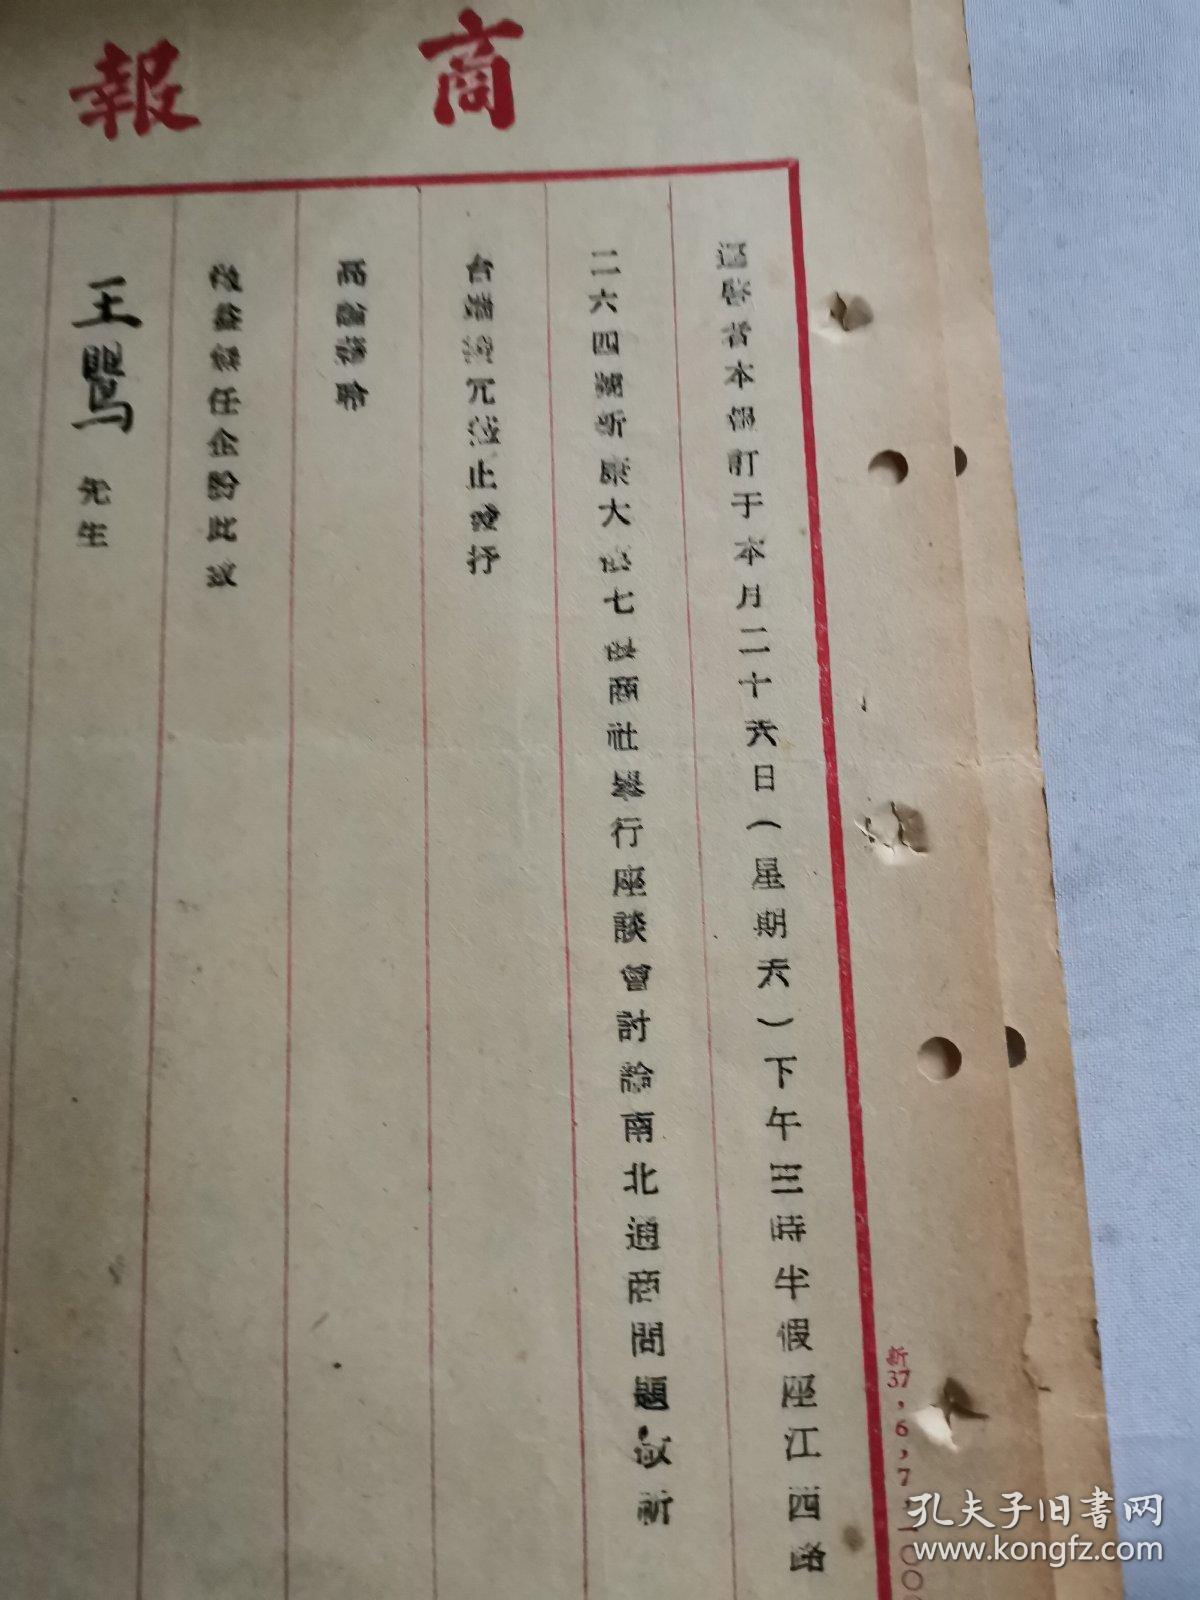 商報
逕啓者本報訂于本月二十六日(星期天)下午三時半假座江西路
二六四號新康大樓七樓商社舉行座談會討論南北通商問題敬祈
台端撥冗蒞止發抒
高論藉聆
教益無任企盼此致
王鷖 先生
新37,6,7,100
孔夫子旧书网
www.kongfz.com